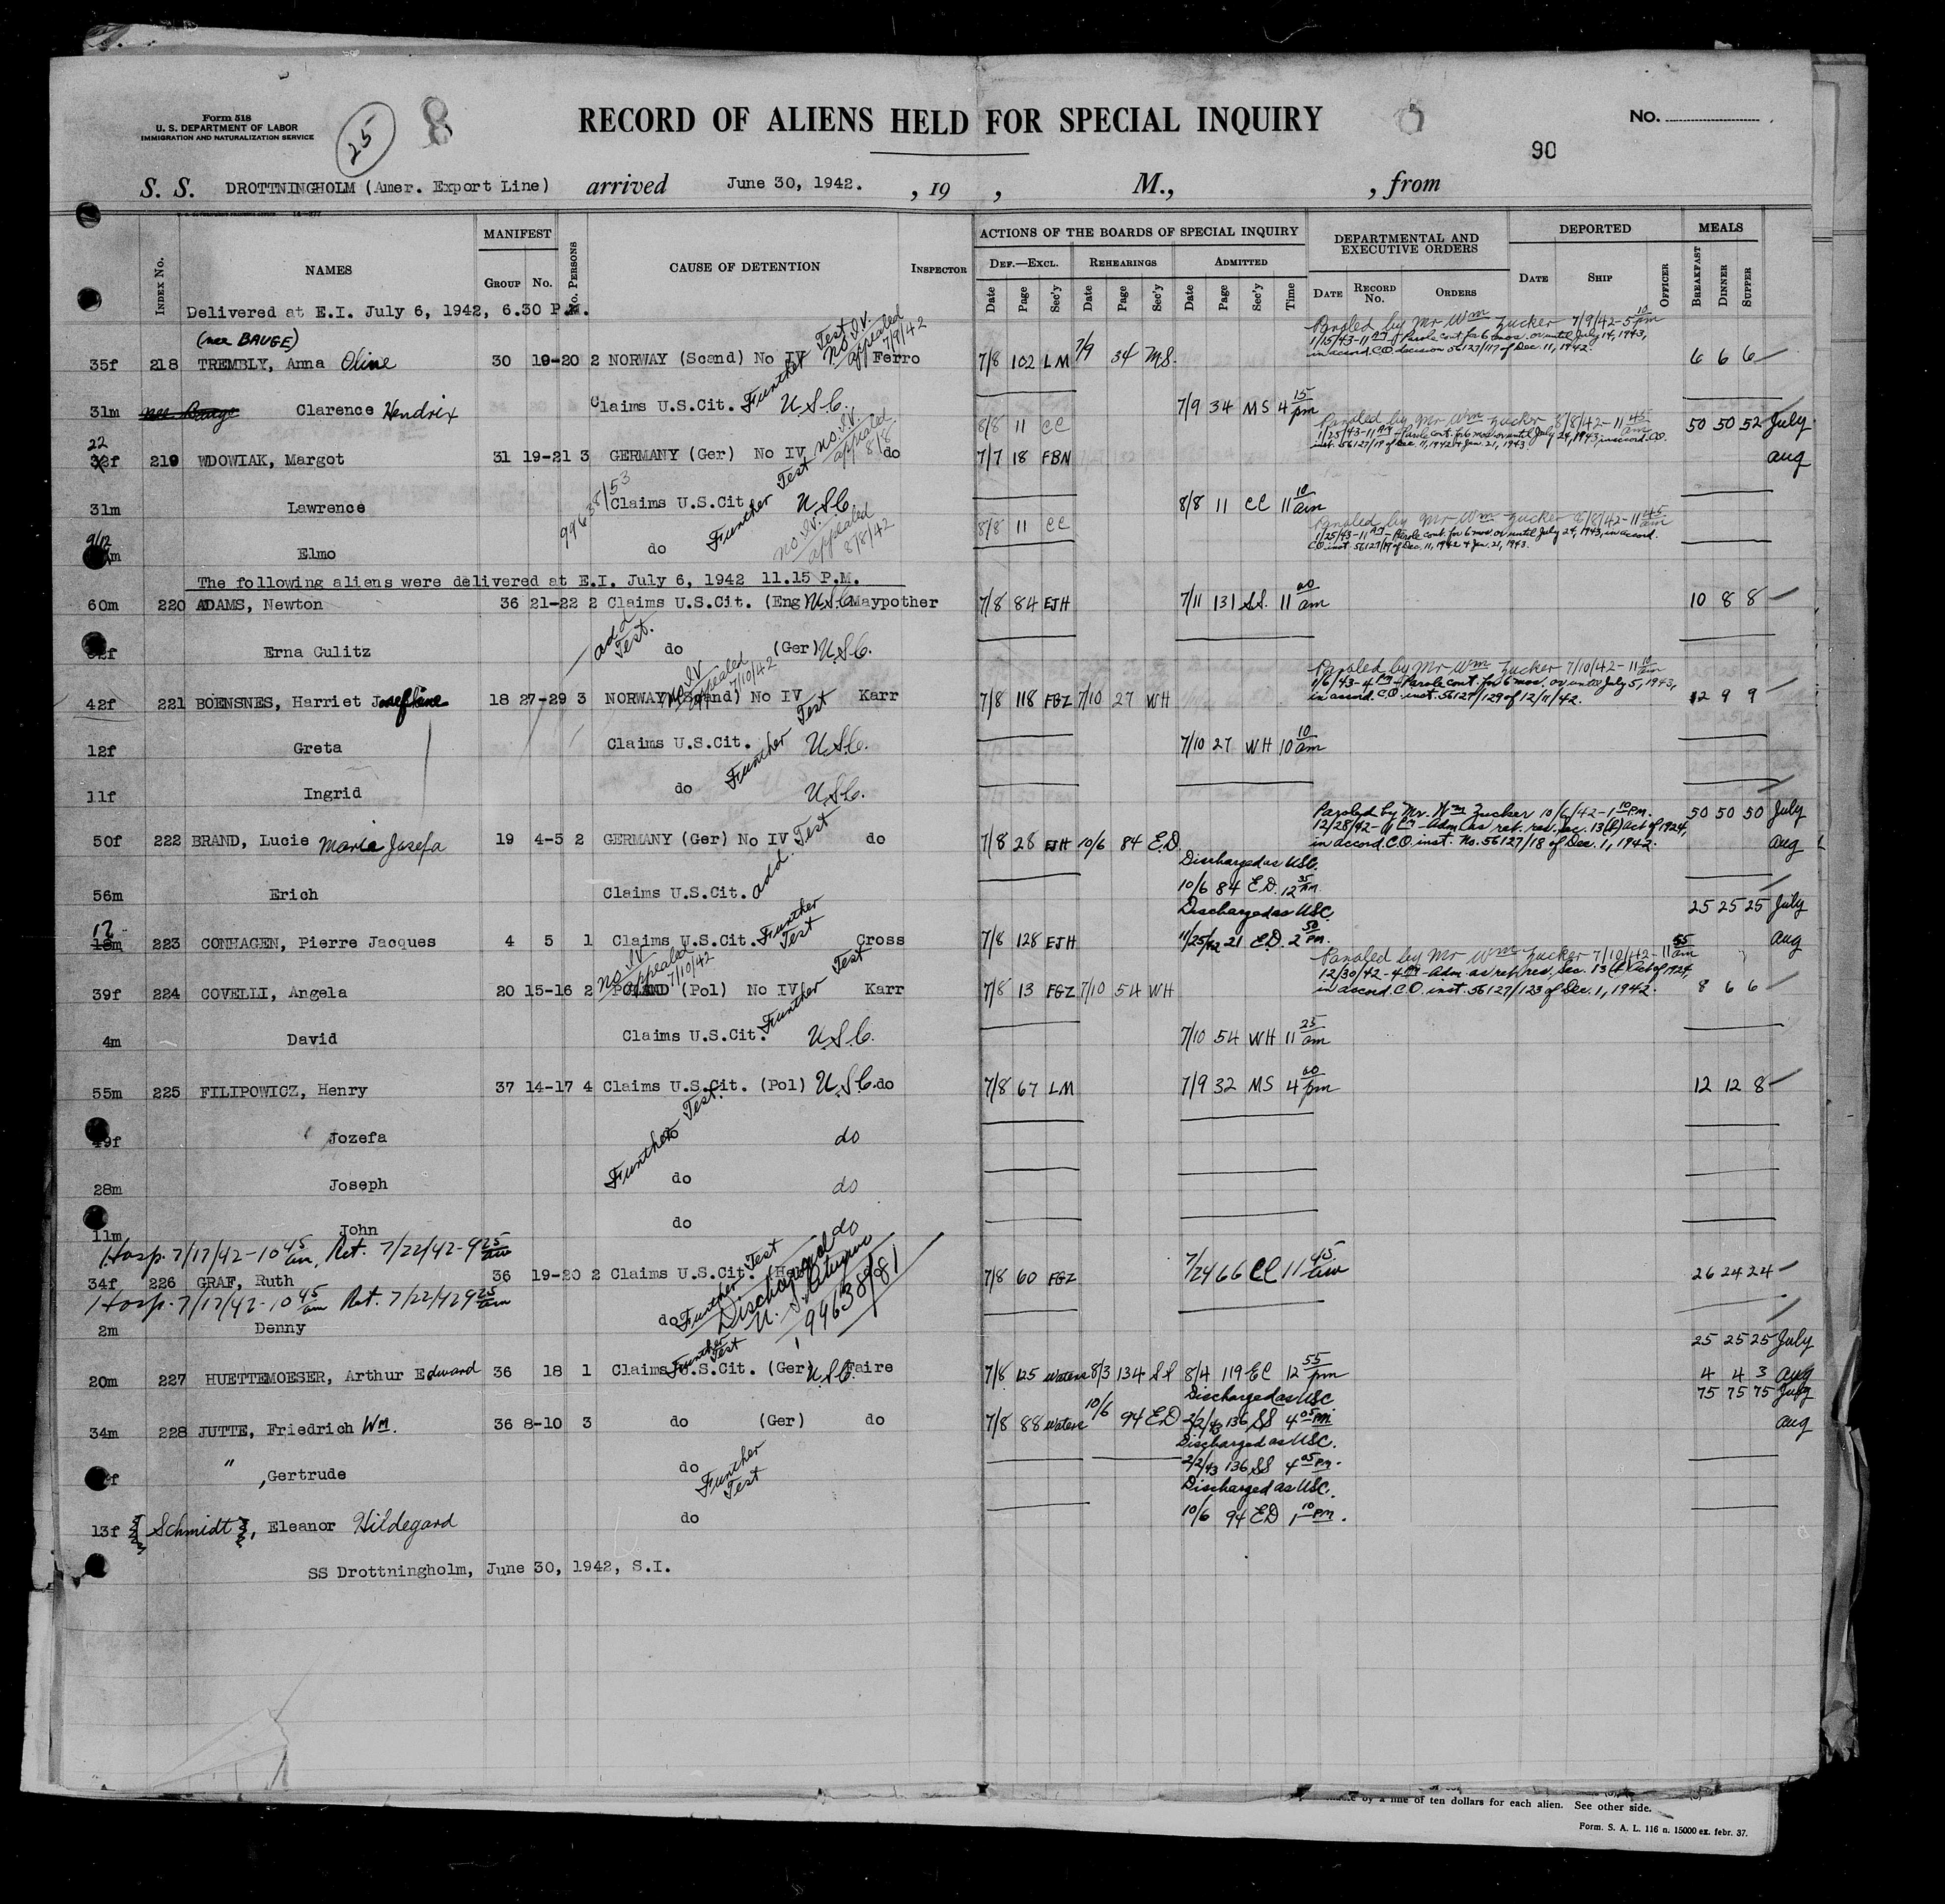 Form 518
U. S. DEPARTMENT OF LABOR
IMMIGRATION AND NATURALIZATION SERVICE
25
8
RECORD OF ALIENS HELD FOR SPECIAL INQUIRY
No.
90
S. S. DROTTNINGHOLM (Amer. Export Line) arrived June 30, 1942. , 19 , M., , from
INDEX No. NAMES MANIFEST GROUP NO. No. PERSONS CAUSE OF DETENTION INSPECTOR
ACTIONS OF THE BOARDS OF SPECIAL INQUIRY DEF.—EXCL. REHEARINGS ADMITTED
Date Page Sec'y Date Page Sec'y Date Page Sec'y Time
DEPARTMENTAL AND EXECUTIVE ORDERS DATE RECORD NO. ORDERS
DEPORTED DATE SHIP OFFICER
MEALS BREAKFAST DINNER SUPPER
Delivered at E.I. July 6, 1942, 6.30 P.M.
(nee BAUGE) Test no I.V. appealed 7/9/42
Paroled by Mr Wm Zucker 7/9/42-5 10 pm
1/15/43-11 AM-Parole cont for 6 mos. or until July 14, 1943,
in accord. C.O. decision 56127/117 of Dec. 11, 1942.
35f 218 TREMBLY, Anna Oline 30 19-20 2 NORWAY (Scand) No IV Ferro 7/8 102 LM 7/9 34 M.S. 6 6 6
31m nee Bauge Clarence Hendrix Claims U.S.Cit. Further U.S.C. 7/9 34 MS 4 15 pm
no I.V. appealed 8/8 8/8 11 CC
Paroled by Mr Wm Zucker 8/8/42-11 45 am
1/25/43-11 AM-Parole cont. for 6 mos or until July 24, 1943, in accord. C.O.
inst. 56127/19 of Dec. 11, 1942 & Jan. 21, 1943.
50 50 52 July
22
32f 219 WDOWIAK, Margot 31 19-21 3 GERMANY (Ger) No IV do 7/7 18 FBN aug
99638/53
31m Lawrence Claims U.S.Cit Further Test U.S.C. 8/8 11 CC 11 10 am
no I.V. appealed 8/8/42 8/8 11 CC
Paroled by Mr Wm Zucker 8/8/42-11 45 am
1/25/43-11 AM-Parole cont. for 6 mos. or until July 24, 1943, in accord.
C.O. inst. 56127/19 of Dec. 11, 1942 & Jan. 21, 1943.
9/12 m Elmo do
The following aliens were delivered at E.I. July 6, 1942 11.15 P.M.
60m 220 ADAMS, Newton 36 21-22 2 Claims U.S.Cit. (Eng) U.S.C. Maypother 7/8 84 EJH 7/11 131 SS. 11 00 am 10 8 8
2f Erna Gulitz add Test. do (Ger) U.S.C.
no IV appealed 7/10/42
Paroled by Mr Wm Zucker 7/10/42-11 10 am
1/6/43-4 PM-Parole cont. for 6 mos. or until July 5, 1943,
in accord. C.O. inst. 56127/129 of 12/11/42.
42f 221 BOENSNES, Harriet Josephine 18 27-29 3 NORWAY (Scand) No IV Karr 7/8 118 FGZ 7/10 27 WH 12 9 9
12f Greta Claims U.S.Cit. Further Test U.S.C. 7/10 27 WH 10 10 am
11f Ingrid do U.S.C.
Paroled by Mr. Wm Zucker 10/6/42-1 10 P.M.
12/28/42-11 AM-Adm. as ret. res. sec. 13(b) Act of 1924,
in accord. C.O. inst. No. 56127/18 of Dec. 1, 1942.
50 50 50 July
50f 222 BRAND, Lucie Maria Josefa 19 4-5 2 GERMANY (Ger) No IV do 7/8 28 EJH 10/6 84 E.D. aug
Discharged as USC.
56m Erich Claims U.S.Cit. add. Test 10/6 84 E.D. 12 35 P.M.
Discharged as USC.
25 25 25 July
12
18m 223 CONHAGEN, Pierre Jacques 4 5 1 Claims U.S.Cit. Further Test Cross 7/8 128 EJH 11/25/42 21 E.D. 2 50 P.M. aug
no IV appealed 7/10/42
Paroled by Mr Wm Zucker 7/10/42-11 55 am
12/30/42-4 PM-Adm. as ret. res. Sec. 13(b) Act of 1924,
in accord. C.O. inst. 56127/123 of Dec. 1, 1942.
39f 224 COVELLI, Angela 20 15-16 2 POLAND (Pol) No IV Karr 7/8 13 FGZ 7/10 54 WH 8 6 6
4m David Claims U.S.Cit. Further Test U.S.C. 7/10 54 WH 11 25 am
55m 225 FILIPOWICZ, Henry 37 14-17 4 Claims U.S.Cit. (Pol) U.S.C. do 7/8 67 LM 7/9 32 MS 4 00 pm 12 12 8
49f Jozefa Further Test. do do
28m Joseph do do
11m John do do
Hosp. 7/17/42-10 45 am, Ret. 7/22/42-9 25 am
34f 226 GRAF, Ruth 36 19-20 2 Claims U.S.Cit. Further Test 7/8 60 FGZ 7/24 66 CC 11 45 am 26 24 24
Hosp. 7/17/42-10 45 am Ret. 7/22/42 9 25 am
2m Denny do Discharged U. S. 99638/81
25 25 25 July
20m 227 HUETTEMOESER, Arthur Edward 36 18 1 Claims U.S.Cit. (Ger) Further Test U.S.C. Faire 7/8 125 Waters 8/3 134 SS 8/4 119 EC 12 55 pm 4 4 3 aug
Discharged as USC
75 75 75 July
34m 228 JUTTE, Friedrich Wm. 36 8-10 3 do (Ger) do 7/8 88 Waters 10/6 94 E.D 2/2/43 136 SS 4 05 PM aug
Discharged as USC.
f " , Gertrude do Further Test 2/2/43 136 SS 4 05 P.M.
Discharged as USC.
13f Schmidt, Eleanor Hildegard do 10/6 94 ED 1 10 P.M.
SS Drottningholm, June 30, 1942, S.I.
by a fine of ten dollars for each alien. See other side.
Form. S. A. L. 116 n. 15000 ex. febr. 37.